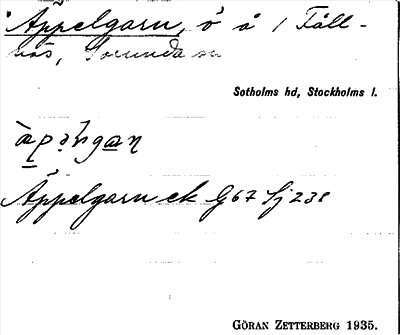 Äppelgarn, ö å / Fåll-
näs, Sorunda sn
Sotholms hd, Stockholms l.
Äppelgarn ek G67 Sj 238
GÖRAN ZETTERBERG 1935.